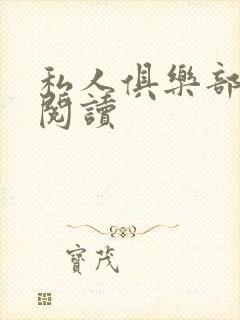 私人俱樂部
閱讀
寶茂